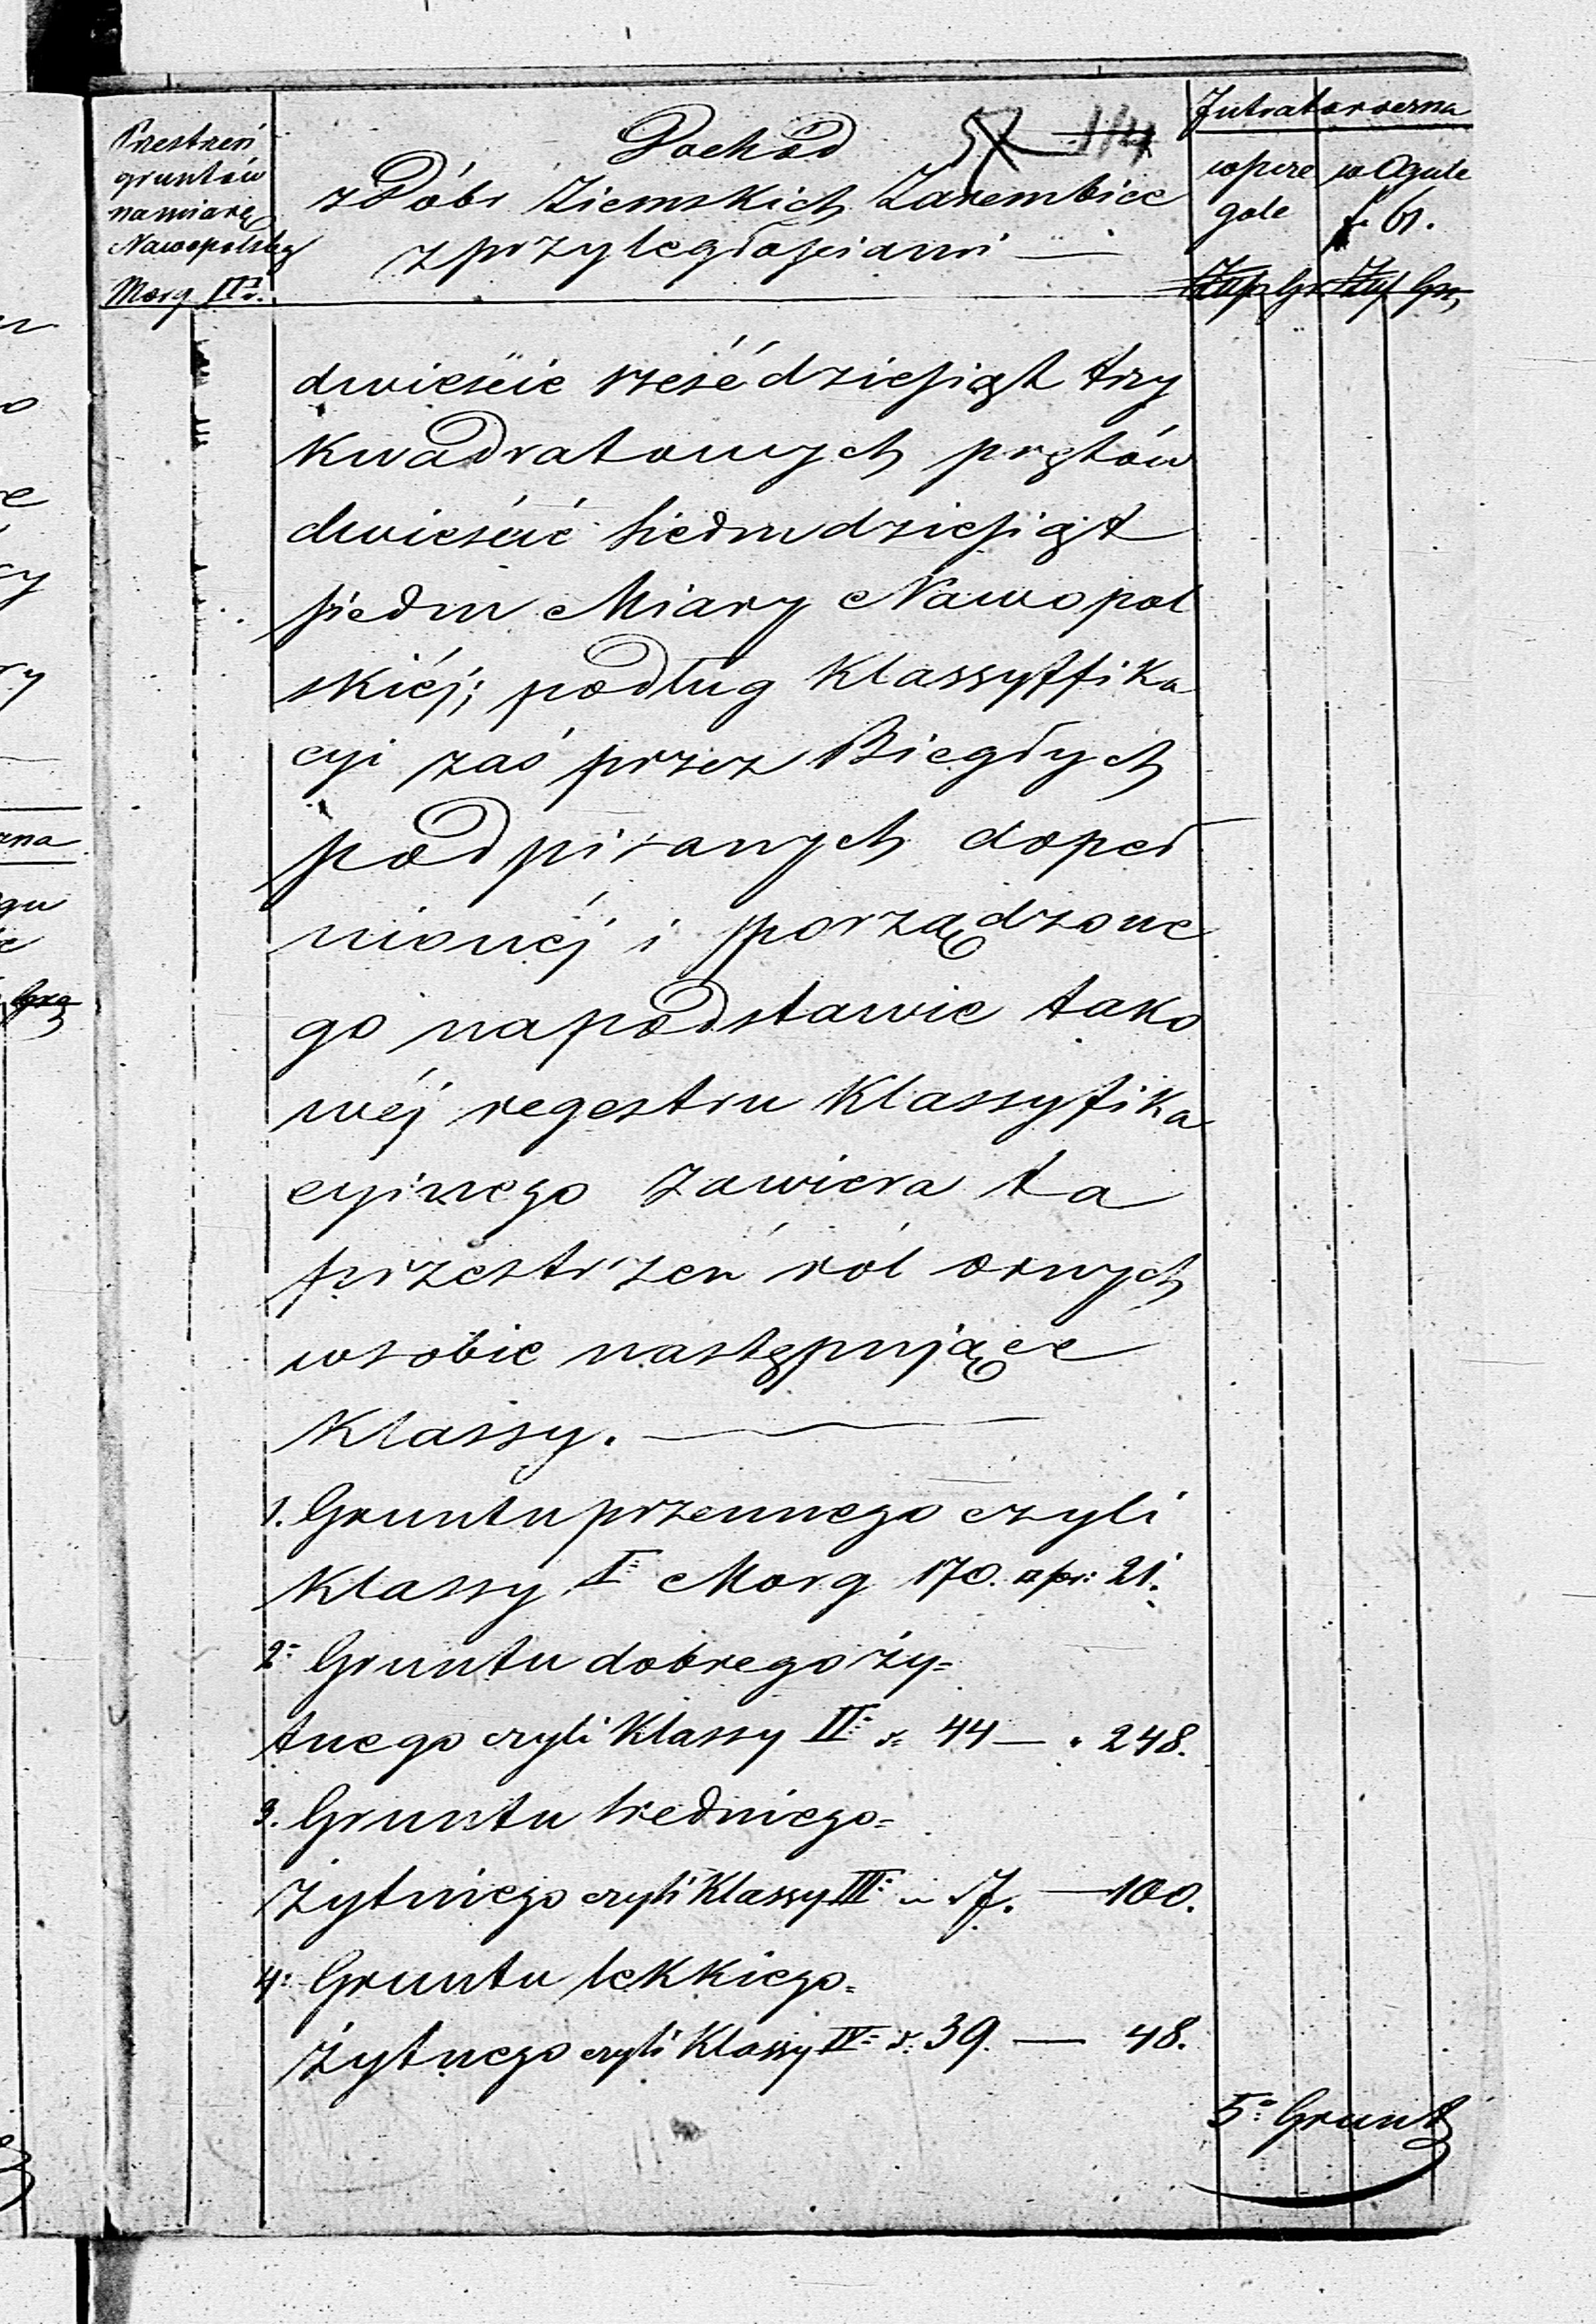 Przestrzeń
gruntów
na miarę
Nowopolską
Morg Pr.
Dochód
z Dóbr Ziemskich Zarembice
z przyległościami —
114
Intrata roczna
w szcze
góle
w Ogule
f. gr.
dwieście sześćdziesiąt trzy
kwadratowych prętów
dwieście siedmdziesiąt
siedm Miary Nowopol
skiéj; podług Klassyffika
cyi zaś przez Biegłych
podpisanych dopeł
nionéj i sporządzone
go na podstawie tako
wéj regestru Klassyfika
cyinego zawiera ta
przestrzeń ról ornych
w sobie następujące
Klassy. —
1. Gruntu pszennego czyli
Klassy I: Morg 170. pr: 21.
2: Gruntu dobrego ży=
tnego czyli Klassy II: 44 — " 248.
3. Gruntu średniego=
żytniego czyli Klassy III: — 100.
4: Gruntu lekkiego=
żytnego czyli Klassy IV= 39. — 48.
5o: Grunt